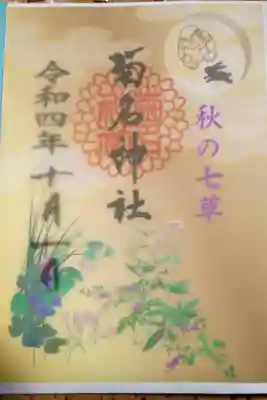 秋の七草
菊名神社
令和四年十月一日